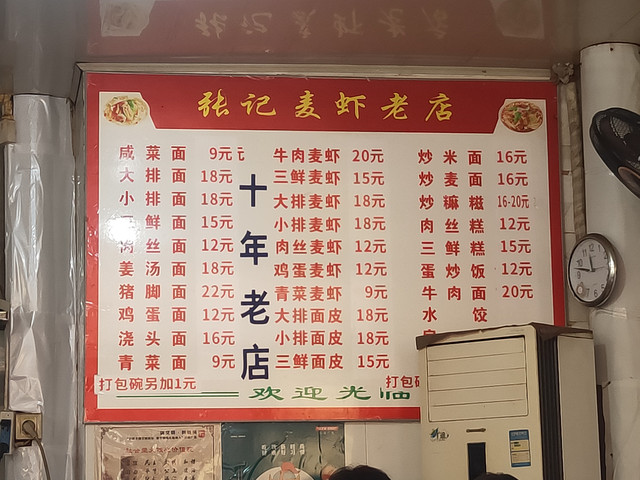 张记麦虾老店
咸菜面 9元
大排面 18元
小排面 18元
三鲜面 15元
肉丝面 12元
姜汤面 18元
猪脚面 22元
鸡蛋面 12元
浇头面 16元
青菜面 9元
十年老店
牛肉麦虾 20元
三鲜麦虾 15元
大排麦虾 18元
小排麦虾 18元
肉丝麦虾 12元
鸡蛋麦虾 12元
青菜麦虾 9元
大排面皮 18元
小排面皮 18元
三鲜面皮 15元
炒米面 16元
炒麦面 16元
炒嘛糍 16-20元
肉丝糕 12元
三鲜糕 15元
蛋炒饭 12元
牛肉面 20元
水饺
打包碗另加1元
打包
欢迎光临